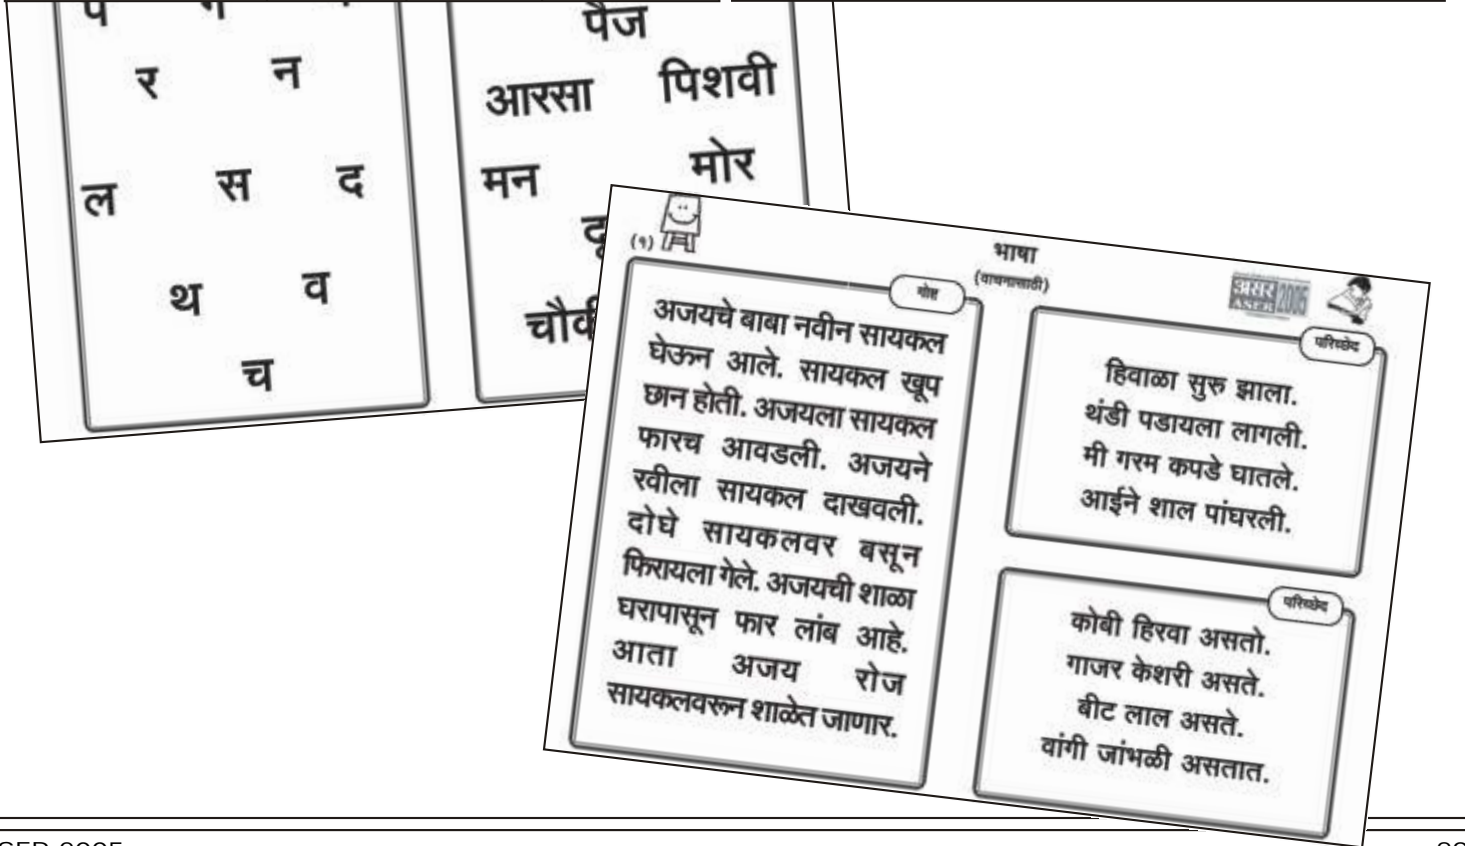 र न
ल स द
थ व
च
पैज
आरसा पिशवी
मन मोर
(१)
भाषा
(वाचनासाठी)
असर
ASER 2005
गोष्ट
अजयचे बाबा नवीन सायकल
घेऊन आले. सायकल खूप
छान होती. अजयला सायकल
फारच आवडली. अजयने
रवीला सायकल दाखवली.
दोघे सायकलवर बसून
फिरायला गेले. अजयची शाळा
घरापासून फार लांब आहे.
आता अजय रोज
सायकलवरून शाळेत जाणार.
परिच्छेद
हिवाळा सुरु झाला.
थंडी पडायला लागली.
मी गरम कपडे घातले.
आईने शाल पांघरली.
परिच्छेद
कोबी हिरवा असतो.
गाजर केशरी असते.
बीट लाल असते.
वांगी जांभळी असतात.